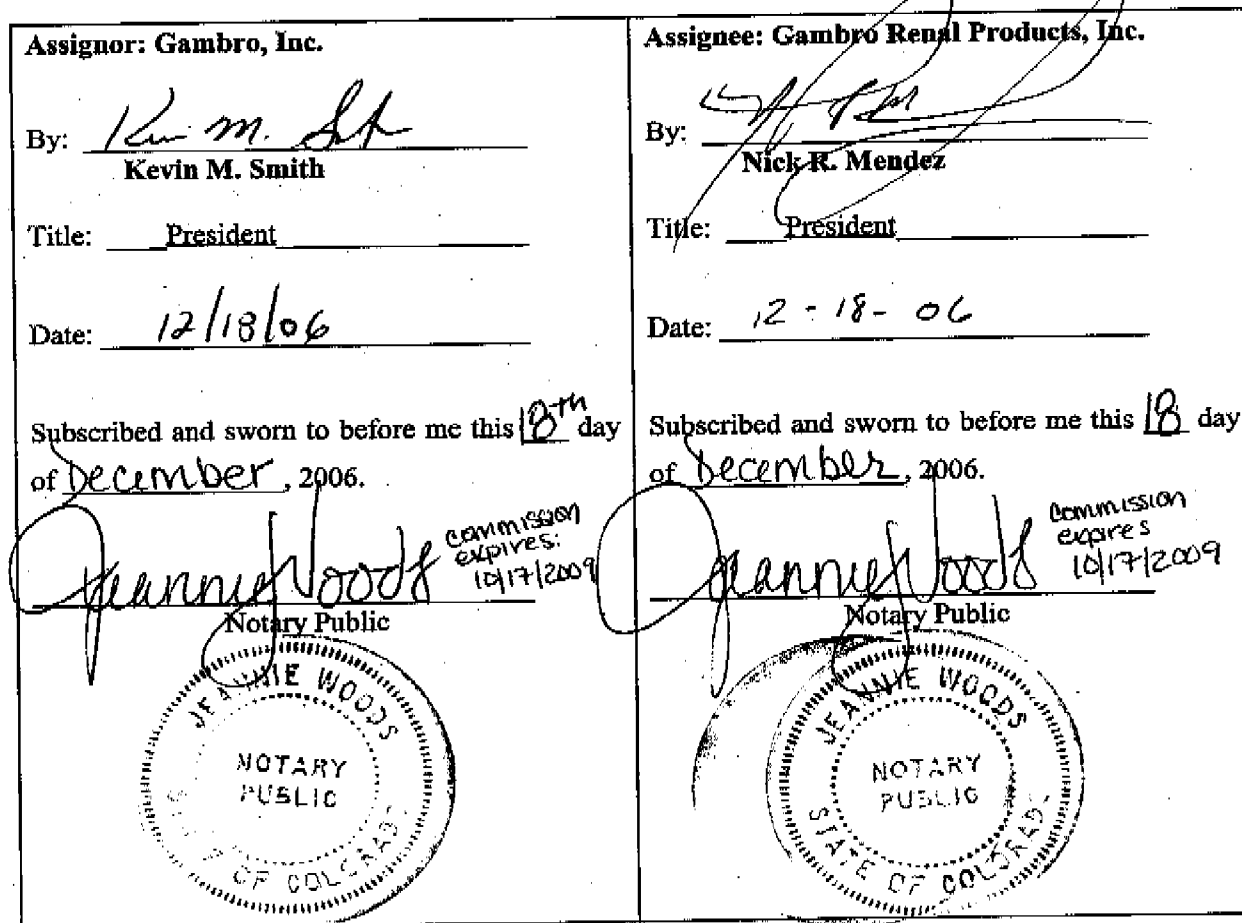 Assignor: Gambro, Inc.
By: Kevin M. Smith
Kevin M. Smith
Title: President
Date: 12/18/06
Subscribed and sworn to before me this 18th day
of December, 2006.
Jeannie Woods
commission
expires:
10/17/2009
Notary Public
JEANNIE WOODS
NOTARY
PUBLIC
STATE OF COLORADO
Assignee: Gambro Renal Products, Inc.
By:
Nick R. Mendez
Title: President
Date: 12-18-06
Subscribed and sworn to before me this 18 day
of December, 2006.
Jeannie Woods
commission
expires
10/17/2009
Notary Public
JEANNIE WOODS
NOTARY
PUBLIC
STATE OF COLORADO